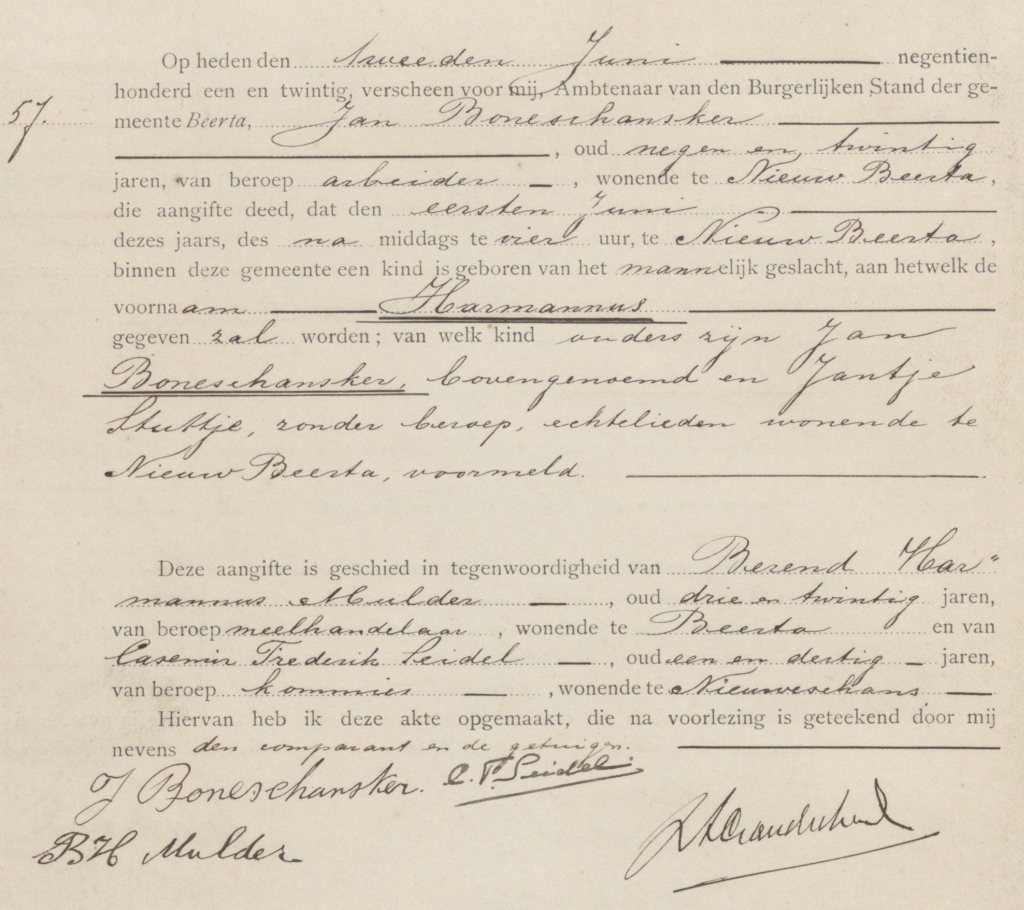 Op heden den tweeden Juni negentien-
57.
honderd een en twintig, verscheen voor mij, Ambtenaar van den Burgerlijken Stand der ge-
meente Beerta, Jan Boneschansker
, oud negen en twintig
jaren, van beroep arbeider , wonende te Nieuw Beerta,
die aangifte deed, dat den eersten Juni
dezes jaars, des na middags te vier uur, te Nieuw Beerta,
binnen deze gemeente een kind is geboren van het mannelijk geslacht, aan hetwelk de
voornaam Harmannus
gegeven zal worden; van welk kind ouders zijn Jan
Boneschansker, bovengenoemd en Jantje
Stuttje, zonder beroep, echtelieden wonende te
Nieuw Beerta, voormeld.
Deze aangifte is geschied in tegenwoordigheid van Berend Har"
mannus Mulder , oud drie en twintig jaren,
van beroep meelhandelaar , wonende te Beerta en van
Casemir Frederik Seidel , oud een en dertig jaren,
van beroep kommies , wonende te Nieuweschans
Hiervan heb ik deze akte opgemaakt, die na voorlezing is geteekend door mij
nevens den comparant en de getuigen.
J Boneschansker. C. F. Seidel.
BH Mulder